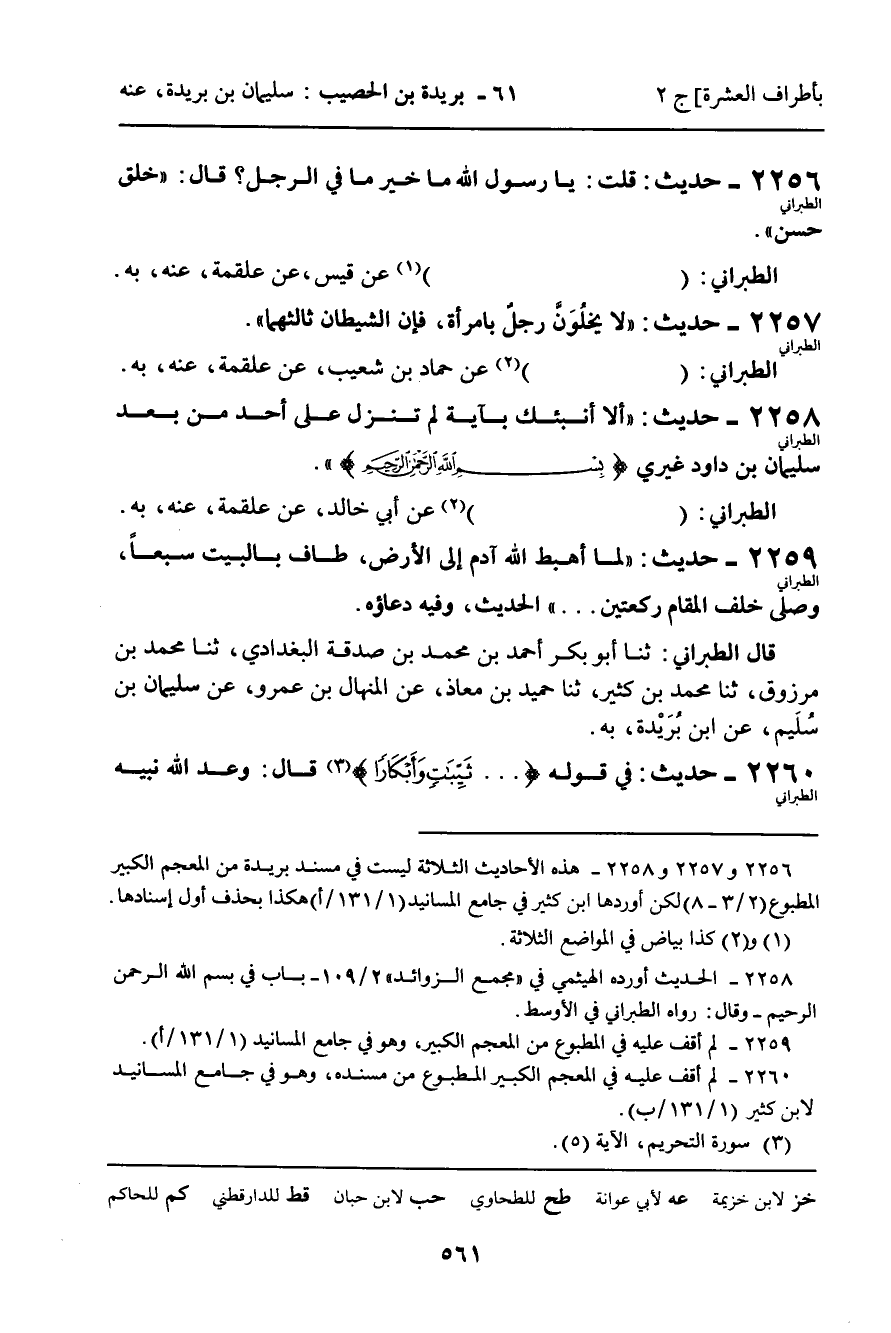 بأطراف العشرة] ج ٢ ٦١ - بريدة بن الحصيب : سليمان بن بريدة، عنه
٢٢٥٦ - حديث: قلت: يا رسول الله ما خير ما في الرجل؟ قال: «خلق
الطبراني
حسن».
الطبراني: ( )(١) عن قيس، عن علقمة، عنه، به.
٢٢٥٧ - حديث: «لا يخلُوَنَّ رجلٌ بامرأة، فإن الشيطان ثالثهما».
الطبراني
الطبراني: ( )(٢) عن حماد بن شعيب، عن علقمة، عنه، به.
٢٢٥٨ - حديث: «ألا أنبئك بآية لم تنزل على أحد من بعد
الطبراني
سليمان بن داود غيري ﴿ بِسْمِ اللَّهِ الرَّحْمَنِ الرَّحِيمِ ﴾ ».
الطبراني: ( )(٢) عن أبي خالد، عن علقمة، عنه، به.
٢٢٥٩ - حديث: «لما أهبط الله آدم إلى الأرض، طاف بالبيت سبعاً،
الطبراني
وصلى خلف المقام ركعتين...» الحديث، وفيه دعاؤه.
قال الطبراني: ثنا أبو بكر أحمد بن محمد بن صدقة البغدادي، ثنا محمد بن
مرزوق، ثنا محمد بن كثير، ثنا حميد بن معاذ، عن المنهال بن عمرو، عن سليمان بن
سُلَيم، عن ابن بُرَيْدة، به.
٢٢٦٠ - حديث: في قوله ﴿ ... ثَيِّبَاتٍ وَأَبْكَارًا ﴾(٣) قال: وعد الله نبيه
الطبراني
٢٢٥٦ و ٢٢٥٧ و ٢٢٥٨ - هذه الأحاديث الثلاثة ليست في مسند بريدة من المعجم الكبير
المطبوع (٣/٢ - ٨) لكن أوردها ابن كثير في جامع المسانيد (١/ ١٣١/أ) هكذا بحذف أول إسنادها.
(١) و(٢) كذا بياض في المواضع الثلاثة.
٢٢٥٨ - الحديث أورده الهيثمي في «مجمع الزوائد» ١٠٩/٢- باب في بسم الله الرحمن
الرحيم - وقال: رواه الطبراني في الأوسط.
٢٢٥٩ - لم أقف عليه في المطبوع من المعجم الكبير، وهو في جامع المسانيد (١/ ١٣١/أ).
٢٢٦٠ - لم أقف عليه في المعجم الكبير المطبوع من مسنده، وهو في جامع المسانيد
لابن كثير (١/ ١٣١/ب).
(٣) سورة التحريم، الآية (٥).
خز لابن خزيمة عه لأبي عوانة طح للطحاوي حب لابن حبان قط للدارقطني كم للحاكم
٥٦١